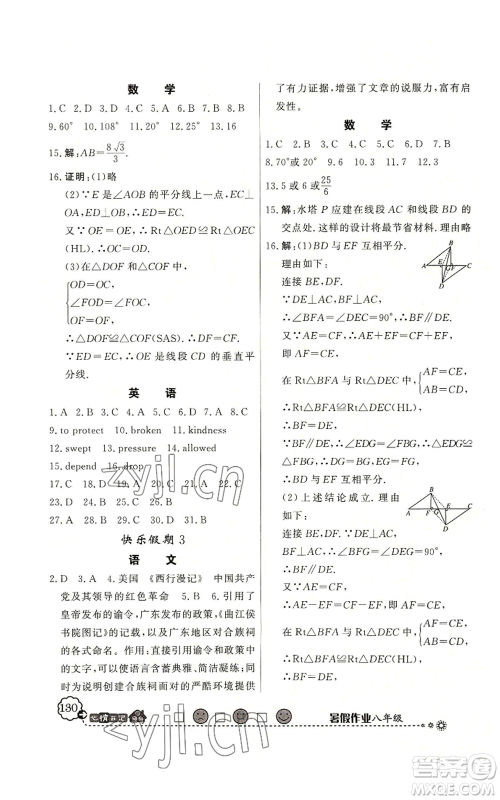 数 学
1. C 2. D 3. D 4. A 5. C 6. B 7. B 8. C
9. 60° 10. 108° 11. 2 12. 3 13. 16
15. 解：AB=8√3/3.
16. 证明：(1)略
(2)∵E 是∠AOB 的平分线上一点，EC⊥
OA，ED⊥OB，∴EC=ED.
又∵OE=OE，∴Rt△OED≌Rt△OEC
(HL). ∴OC=OD.
(3)在△DOF 和△COF 中，
{OD=OC，
∠FOD=∠FOC，
OF=OF，
∴△DOF≌△COF(SAS). ∴DF=FC.
∵ED=EC，∴OE 是线段 CD 的垂直平
分线.
英 语
1. A 2. B 3. B 4. D 5. B 6. C 7. B 8. D
9. to protect 10. broken 11. kindness
12. swept 13. pressure 14. allowed
15. depend 16. drop
17. C 18. D 19. C 20. C 21. A 22. C
23. D 24. C 25. B 26. D
27. A 28. C 29. D 30. C 31. B
快乐假期 3
语 文
2. D 3. A 4. 美国 《西行漫记》 中国共产
党及其领导的红色革命 5. B 6. 引用了
皇帝发布的谕令，广东发布的政策，《曲江侯
书院图记》的记载，以及广东地区对合族祠
的各式命名。作用：使语言含蓄典雅、简洁凝练；同
时为说明创建合族祠面对的严酷环境提供
130
心情日记
了有力证据，增强了文章的说服力，富有启
发性。
数 学
1. C 2. C 3. C 4. B 5. A 6. C 7. D
8. 70°或 20° 9. 6 10. 3 11. 7 12. 3
13. 5 或 6 或 25/6
15. 解：水塔 P 应建在线段 AC 和线段 BD 的
交点处. 这样的设计将最节省材料. 理由略
16. 解：(1)BD 与 EF 互相平分.
理由如下：
连接 BE，DF.
∵DE⊥AC，BF⊥AC，
∴∠AFB=∠CED=90°.
又∵AE=CF，
∴AE+EF=CF+EF.
即 AF=CE，
在 Rt△BFA 与 Rt△DEC 中，{AF=CE，
AB=CD，
∴Rt△BFA≌Rt△DEC(HL).
∴BF=DE，
∵∠BFG=∠DEG=90°，
∴BF∥DE，∴∠EDG=∠GBF.
(2)上述结论成立.
理由如下：
连接 BE，DF.
∵DE⊥AC，BF⊥AC，
∴∠AFB=∠CED=90°.
又∵AE=CF，
∴AE−EF=CF−EF.
即 AF=CE，
在 Rt△BFA 与 Rt△DEC 中，{AF=CE，
AB=CD，
∴Rt△BFA≌Rt△DEC(HL).
∴BF=DE.
暑假作业八年级
zyjl.cn